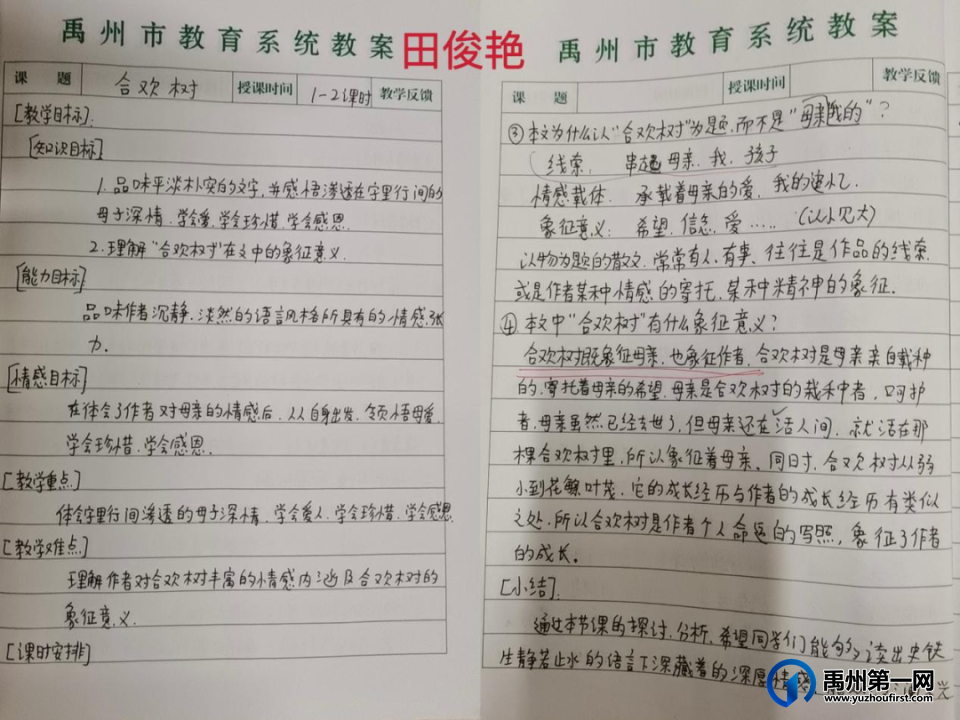 禹州市教育系统教案
田俊艳
课 题 合欢树 授课时间 1-2课时 教学反馈
[教学目标]
[知识目标]
1.品味平淡朴实的文字,并感悟渗透在字里行间的
母子深情.学会爱.学会珍惜.学会感恩.
2.理解"合欢树"在文中的象征意义.
[能力目标]
品味作者沉静.淡然的语言风格所具有的情感张
力.
[情感目标]
在体会了作者对母亲的情感后.从自身出发.领悟母爱.
学会珍惜.学会感恩.
[教学重点]
体会字里行间渗透的母子深情.学会爱人.学会珍惜.学会感恩.
[教学难点]
理解作者对合欢树丰富的情感内涵及合欢树的
象征意义.
[课时安排]
禹州市教育系统教案
课 题 授课时间 教学反馈
③本文为什么以"合欢树"为题.而不是"母亲我的"?
线索: 串起母亲.我.孩子
情感载体. 承载着母亲的爱.我的追忆.
象征意义: 希望.信念.爱..... (以小见大)
以物为题的散文.常常有人.有事.往往是作品的线索.
或是作者某种情感的寄托.某种精神的象征.
④本文中"合欢树"有什么象征意义?
合欢树既象征母亲.也象征作者.合欢树是母亲亲自栽种
的.寄托着母亲的希望.母亲是合欢树的栽种者,呵护
者.母亲虽然已经去世了,但母亲还在活人间.就活在那
棵合欢树里.所以象征着母亲.同时.合欢树从弱
小到花繁叶茂.它的成长经历与作者的成长经历有类似
之处.所以合欢树是作者个人命运的写照,象征了作者
的成长.
[小结]
通过本节课的探讨.分析.希望同学们能够读出史铁
生静若止水的语言下深藏着的深厚情感
禹州第一网
www.yuzhou1.com